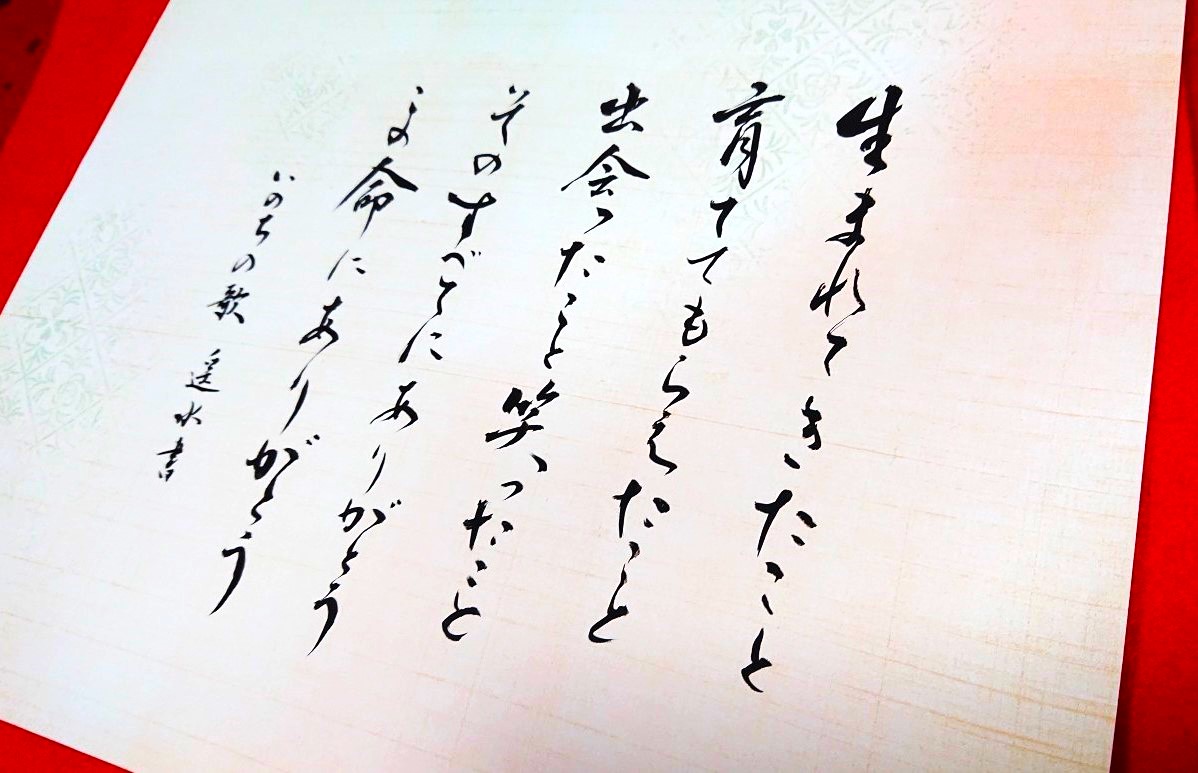 生まれてきたこと
育ててもらえたこと
出会ったこと笑ったこと
そのすべてにありがとう
この命にありがとう
いのちの歌 遥水書